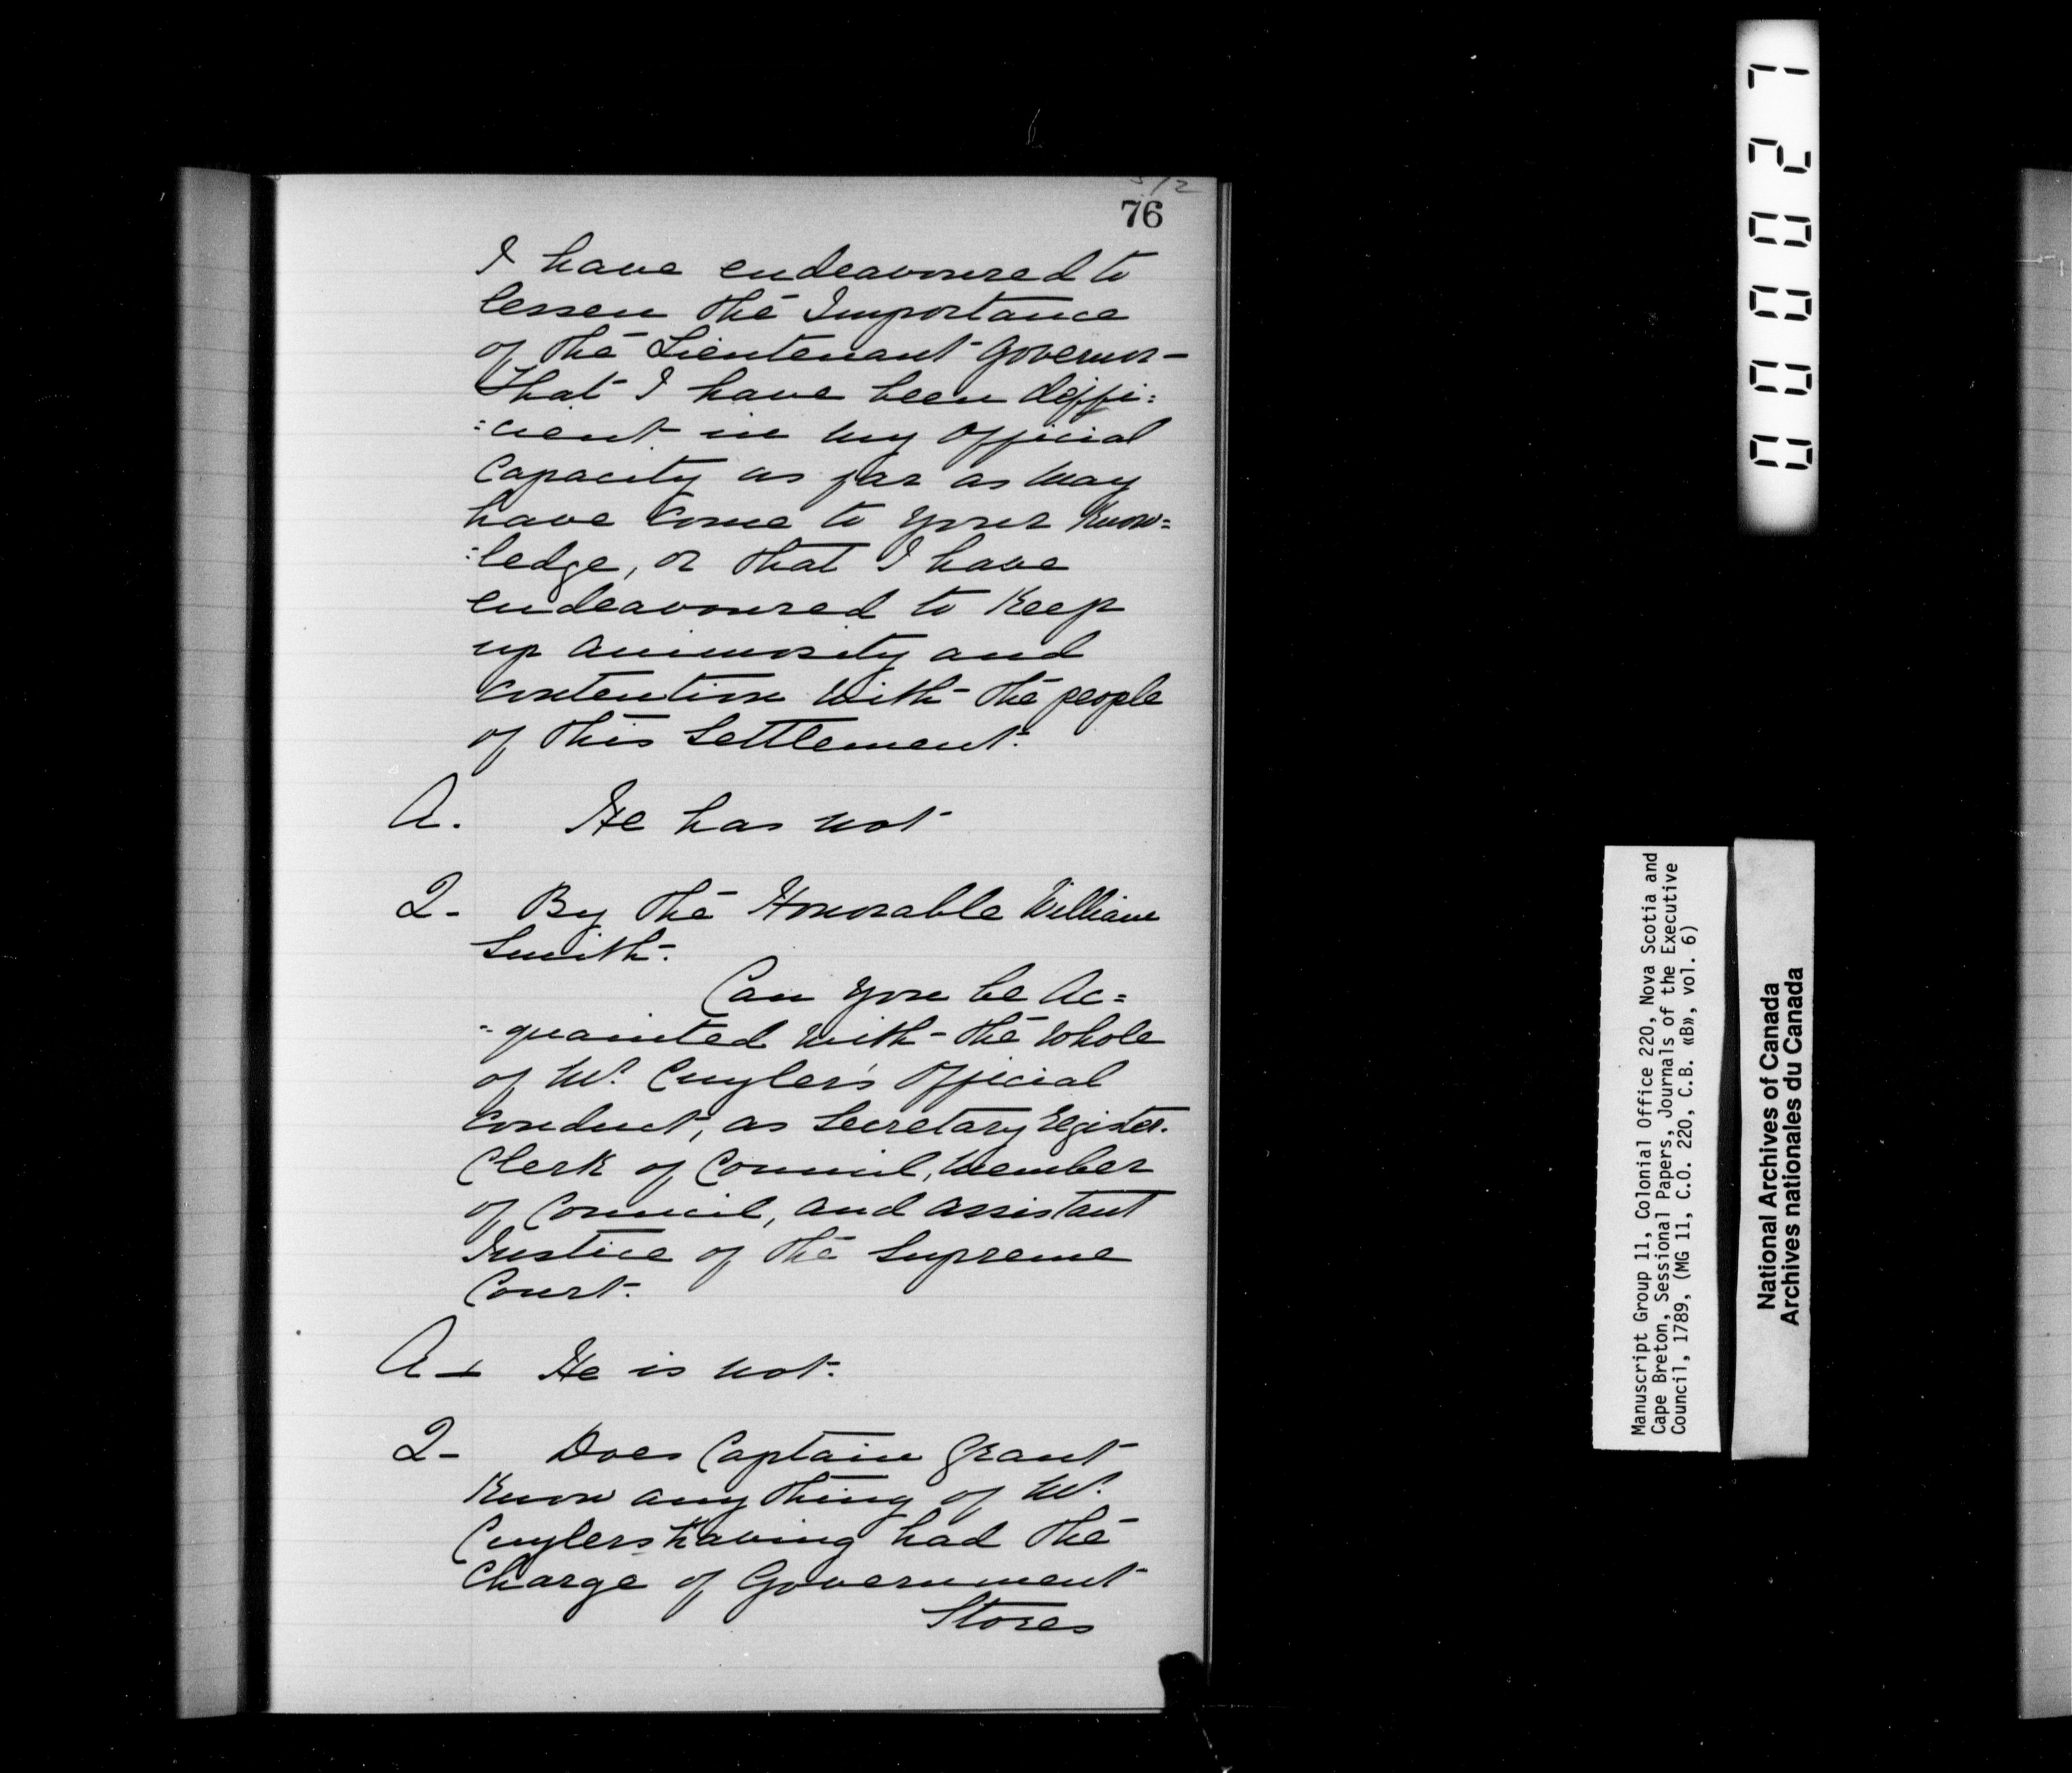 76
I have endeavoured to
lessen the Importance
of the Lieutenant Governor—
That I have been deffi:
:cient in my Official
Capacity as far as may
have come to your Know=
:ledge, or that I have
endeavoured to Keep
up animosity and
contention with the people
of this Settlement.
A. He has not
Q- By the Honorable William
Smith.
Can you be Ac=
=quainted with the whole
of Mr. Cuyler's Official
conduct, as Secretary Register.
Clerk of Council, member
of Council, and assistant
Justice of the Supreme
Court.
A— He is not.
Q- Does Captain Grant
Know any thing of Mr.
Cuylers having had the
Charge of Government
Stores
000027
Manuscript Group 11, Colonial Office 220, Nova Scotia and
Cape Breton, Sessional Papers, Journals of the Executive
Council, 1789, (MG 11, C.O. 220, C.B. «B», vol. 6)
National Archives of Canada
Archives nationales du Canada